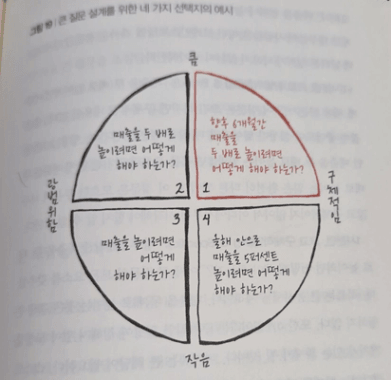 큰 질문 설계를 위한 네 가지 선택지의 예시
큼
매출을 두 배로
높이려면 어떻게
해야 하는가?
2
향후 6개월간
매출을
두 배로 높이려면
어떻게 해야 하는가?
1
광범위함
구체적임
3
매출을 높이려면
어떻게
해야 하는가?
4
올해 안으로
매출을 5퍼센트
높이려면 어떻게
해야 하는가?
작음